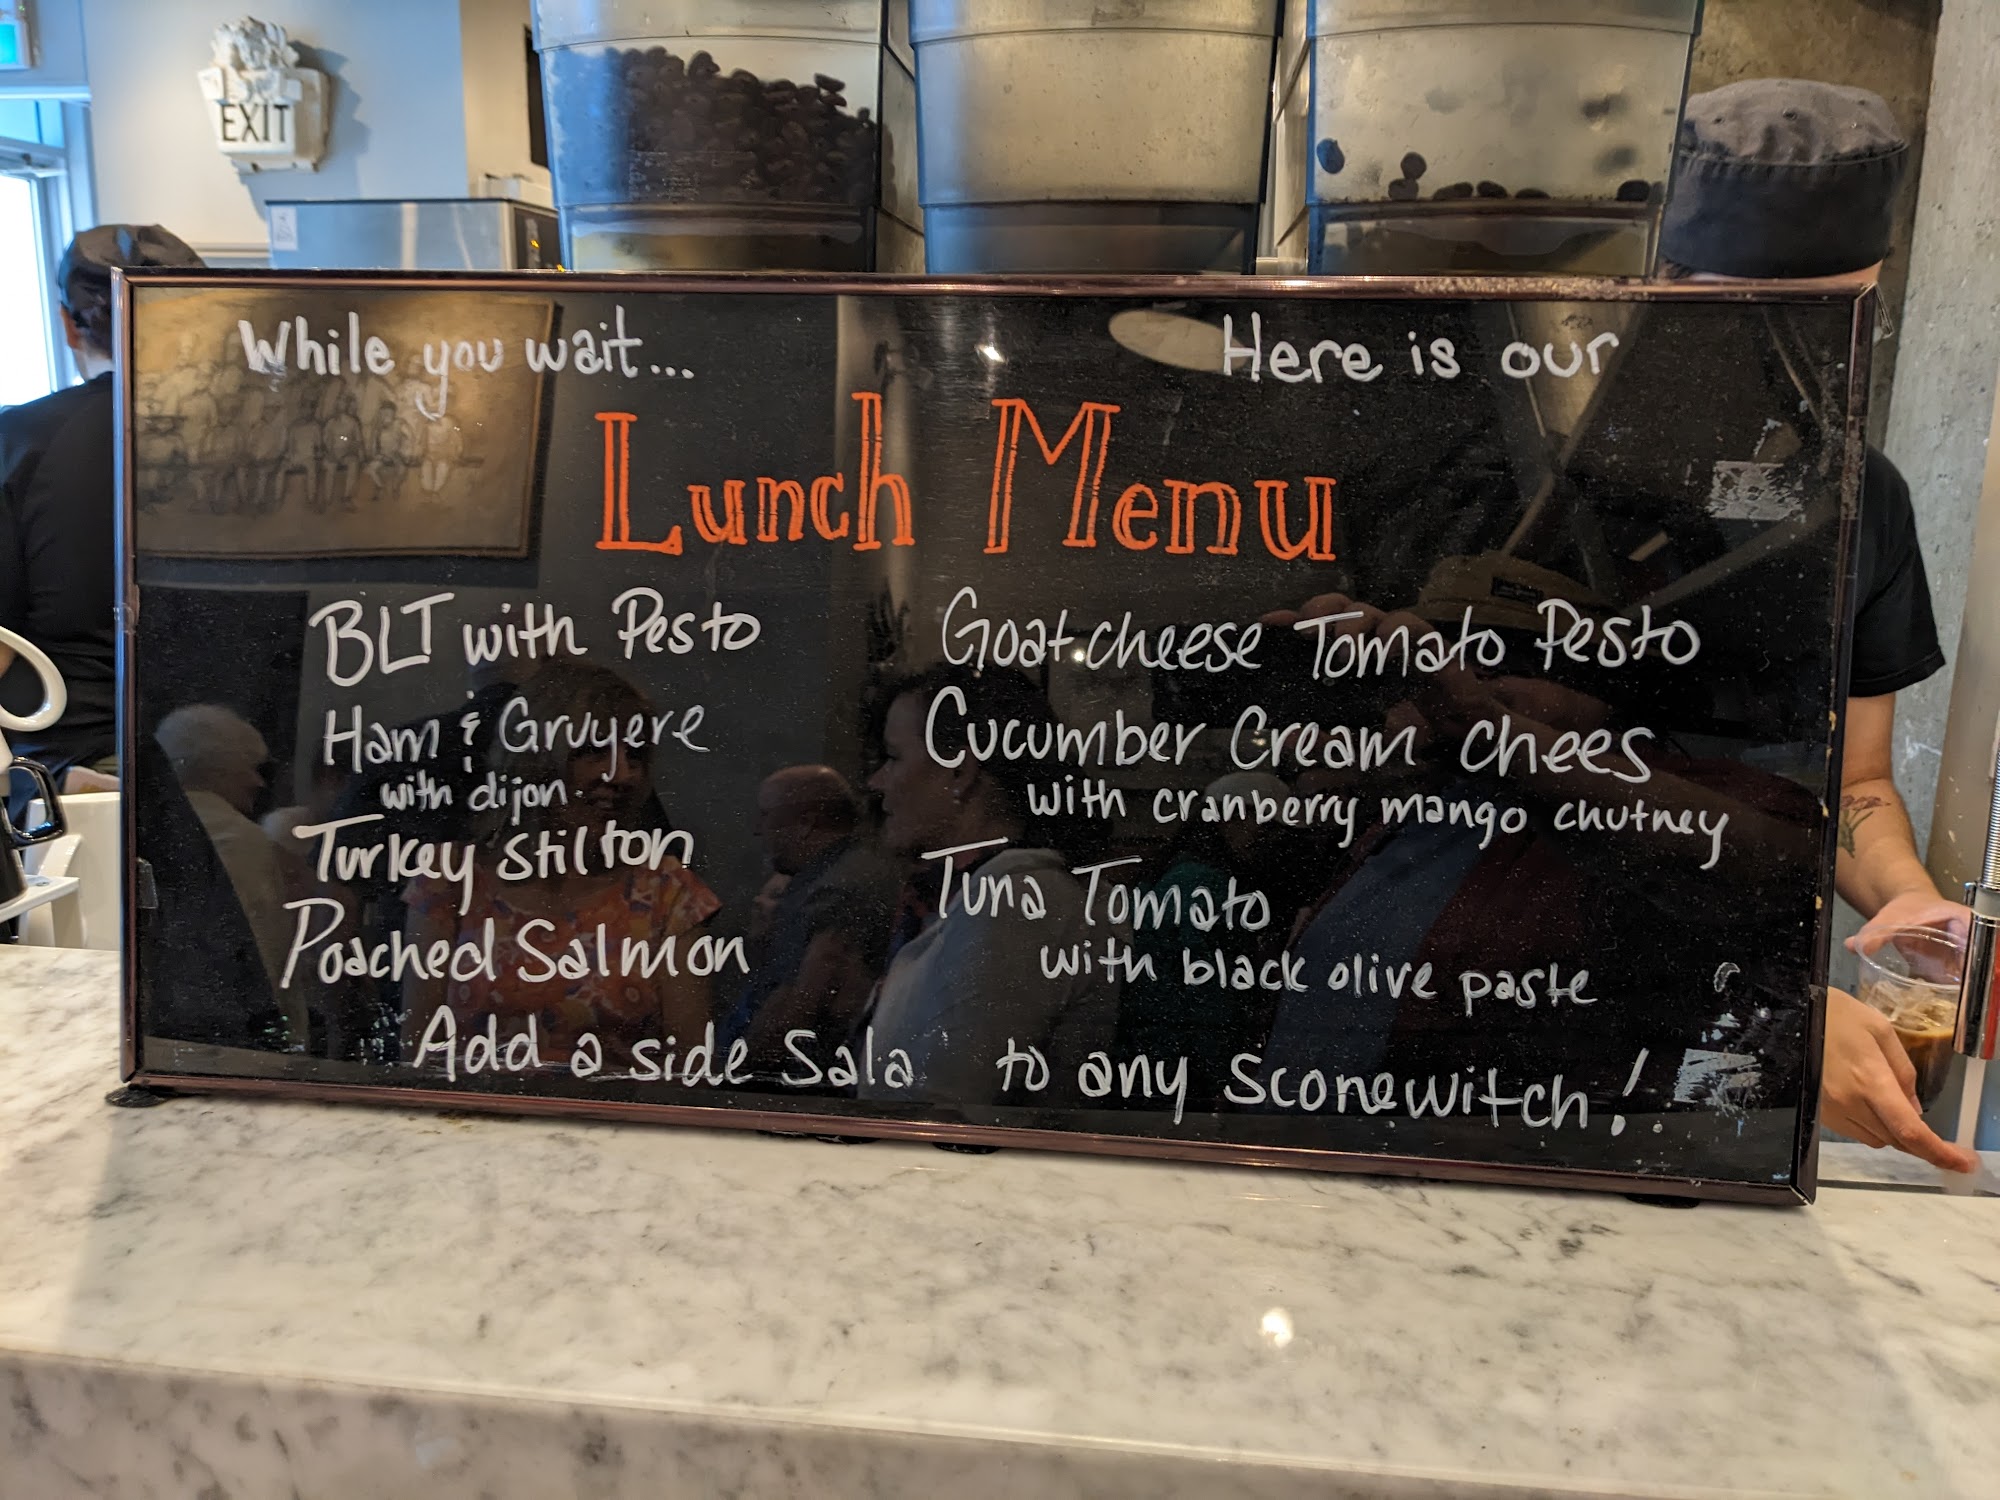 EXIT
While you wait...
Here is our
Lunch Menu
BLT with Pesto
Ham & Gruyere
with dijon.
Turkey Stilton
Poached Salmon
Goat cheese Tomato Pesto
Cucumber Cream chees
with cranberry mango chutney
Tuna Tomato
with black olive paste
Add a side Sala to any Sconewitch!